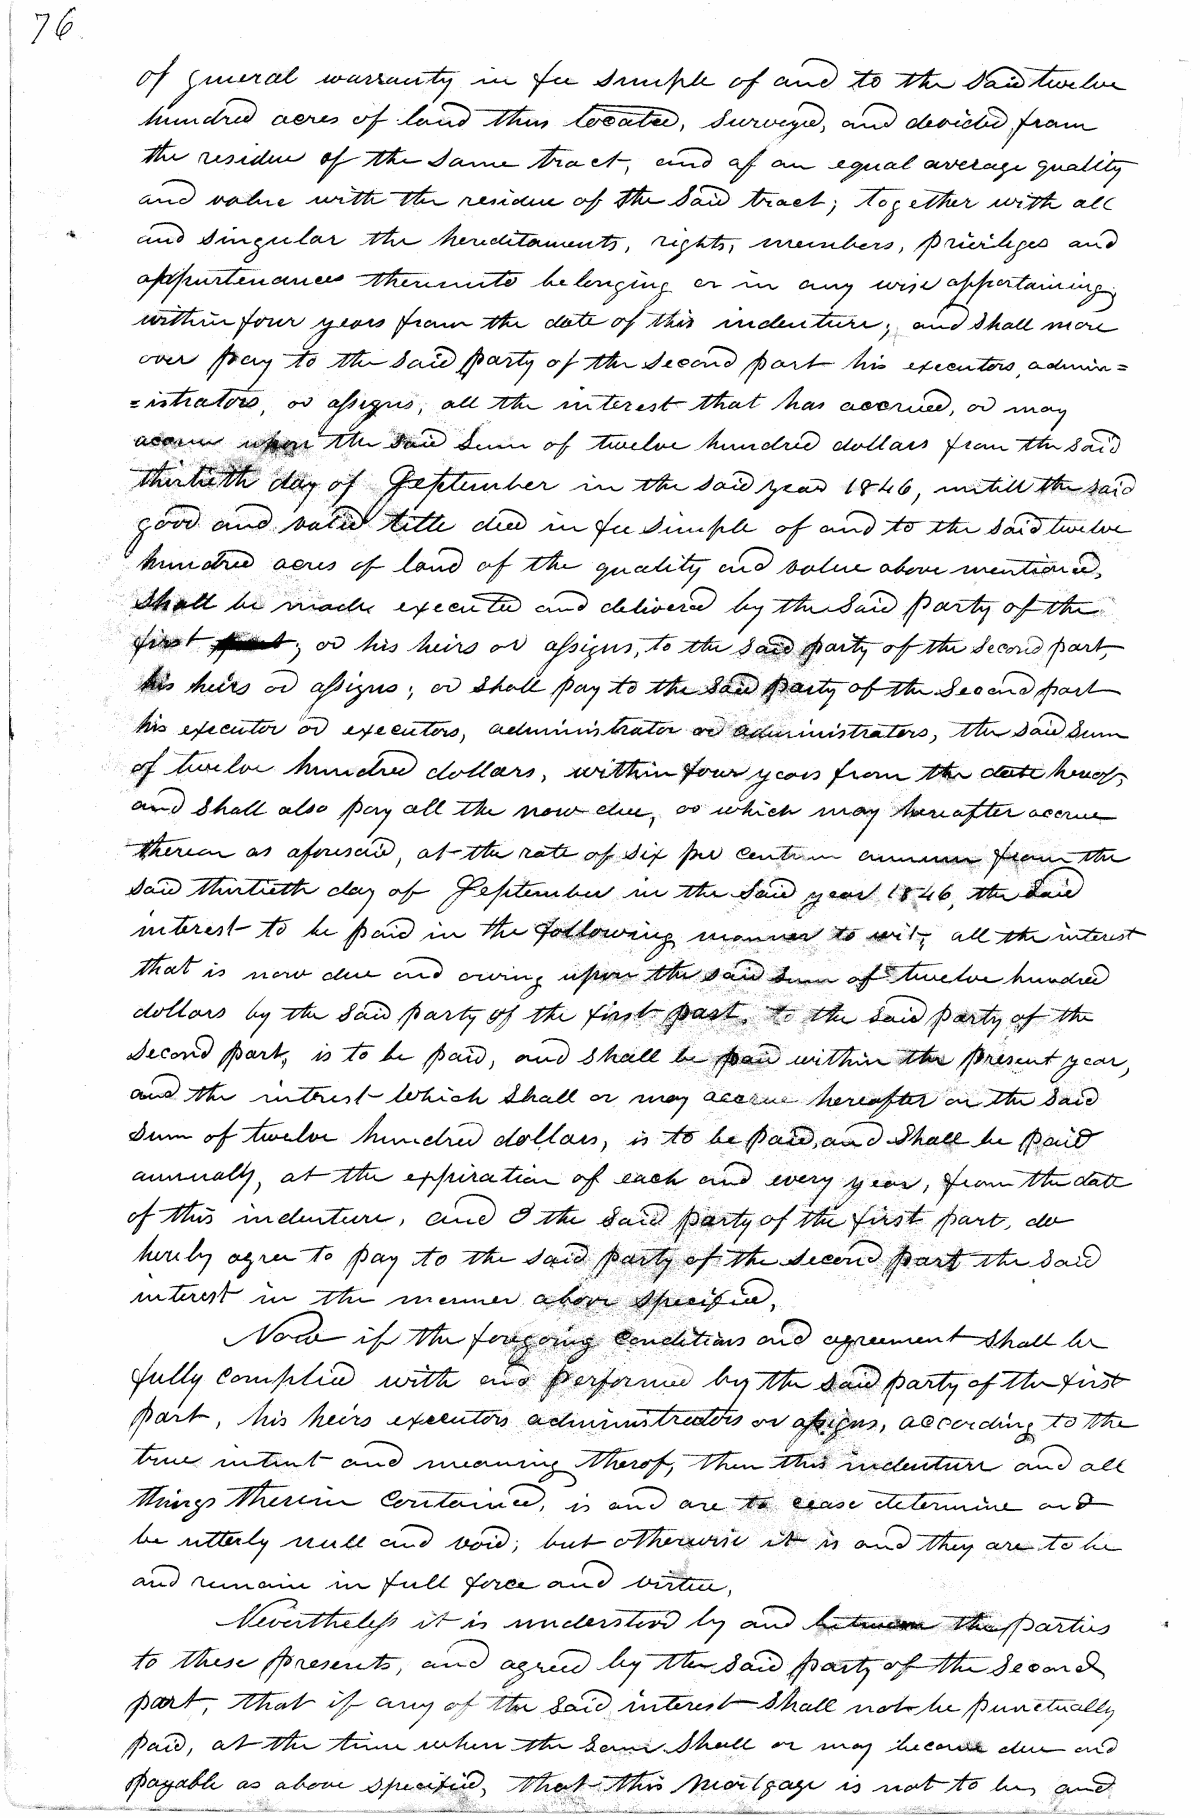 76.
of general warranty in fee simple of and to the said twelve
hundred acres of land thus located, surveyed, and devided, from
the residue of the same tract, and of an equal average quality
and value with the residue of the said tract; together with all
and singular the hereditaments, rights, members, privileges and
appurtenances thereunto belonging or in any wise appertaining;
within four years from the date of this indenture; and shall more
over pay to the said party of the second part his executors, admin=
=istrators, or assigns, all the interest that has accrued, or may
accrue upon the said sum of twelve hundred dollars from the said
thirtieth day of September in the said year 1846, untill the said
good and valid title deed in fee simple of and to the said twelve
hundred acres of land of the quality and value above mentioned,
shall be made, executed and delivered by the said party of the
first part, or his heirs or assigns, to the said party of the second part,
his heirs or assigns; or shall pay to the said party of the second part
his executor or executors, administrator or administrators, the said sum
of twelve hundred dollars, within four years from the date hereof,
and shall also pay all the now due, or which may hereafter accrue
thereon as aforesaid, at the rate of six per centum annum from the
said thirtieth day of September in the said year 1846, the said
interest to be paid in the following manner to wit; all the interest
that is now due and owing upon the said sum of twelve hundred
dollars by the said party of the first part, to the said party of the
second part, is to be paid, and shall be paid within the present year,
and the interest which shall or may accrue hereafter on the said
sum of twelve hundred dollars, is to be paid, and shall be paid
annually, at the expiration of each and every year, from the date
of this indenture, and I the said party of the first part, do
hereby agree to pay to the said party of the second part the said
interest in the manner above specified.
Now if the foregoing conditions and agreement shall be
fully complied with and performed by the said party of the first
part, his heirs executors administrators or assigns, according to the
true intent and meaning therof, then this indenture and all
things therein contained, is and are to cease determine and
be utterly null and void; but otherwise it is and they are to be
and remain in full force and virtue.
Nevertheless it is understood by and between the parties
to these presents, and agreed by the said party of the second
part, that if any of the said interest shall not be punctually
paid, at the time when the same shall or may become due and
payable as above specified, that this mortgage is not to be, and